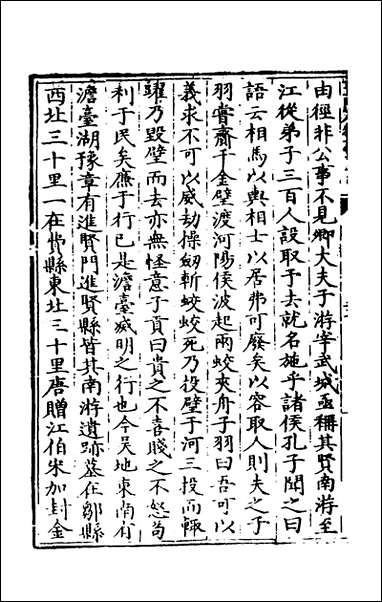 由徑非公事不見卿大夫子游宰武城亟稱其賢南游至
江從弟子三百人設取予去就名施乎諸侯孔子聞之曰
語云相馬以輿相士以居弗可廢矣以容取人則失之子
羽嘗齎千金璧渡河陽侯波起兩蛟夾舟子羽曰吾可以
義求不可以威劫操劒斬蛟蛟死乃投璧于河三投而輒
躍乃毀璧而去亦無怪意子貢曰貴之不喜賤之不怒苟
利于民矣廉于行已是澹臺滅明之行也今吳地東南有
澹臺湖豫章有進賢門進賢縣皆其南游遺跡墓在鄒縣
西北三十里一在費縣東北三十里唐贈江伯宋加封金